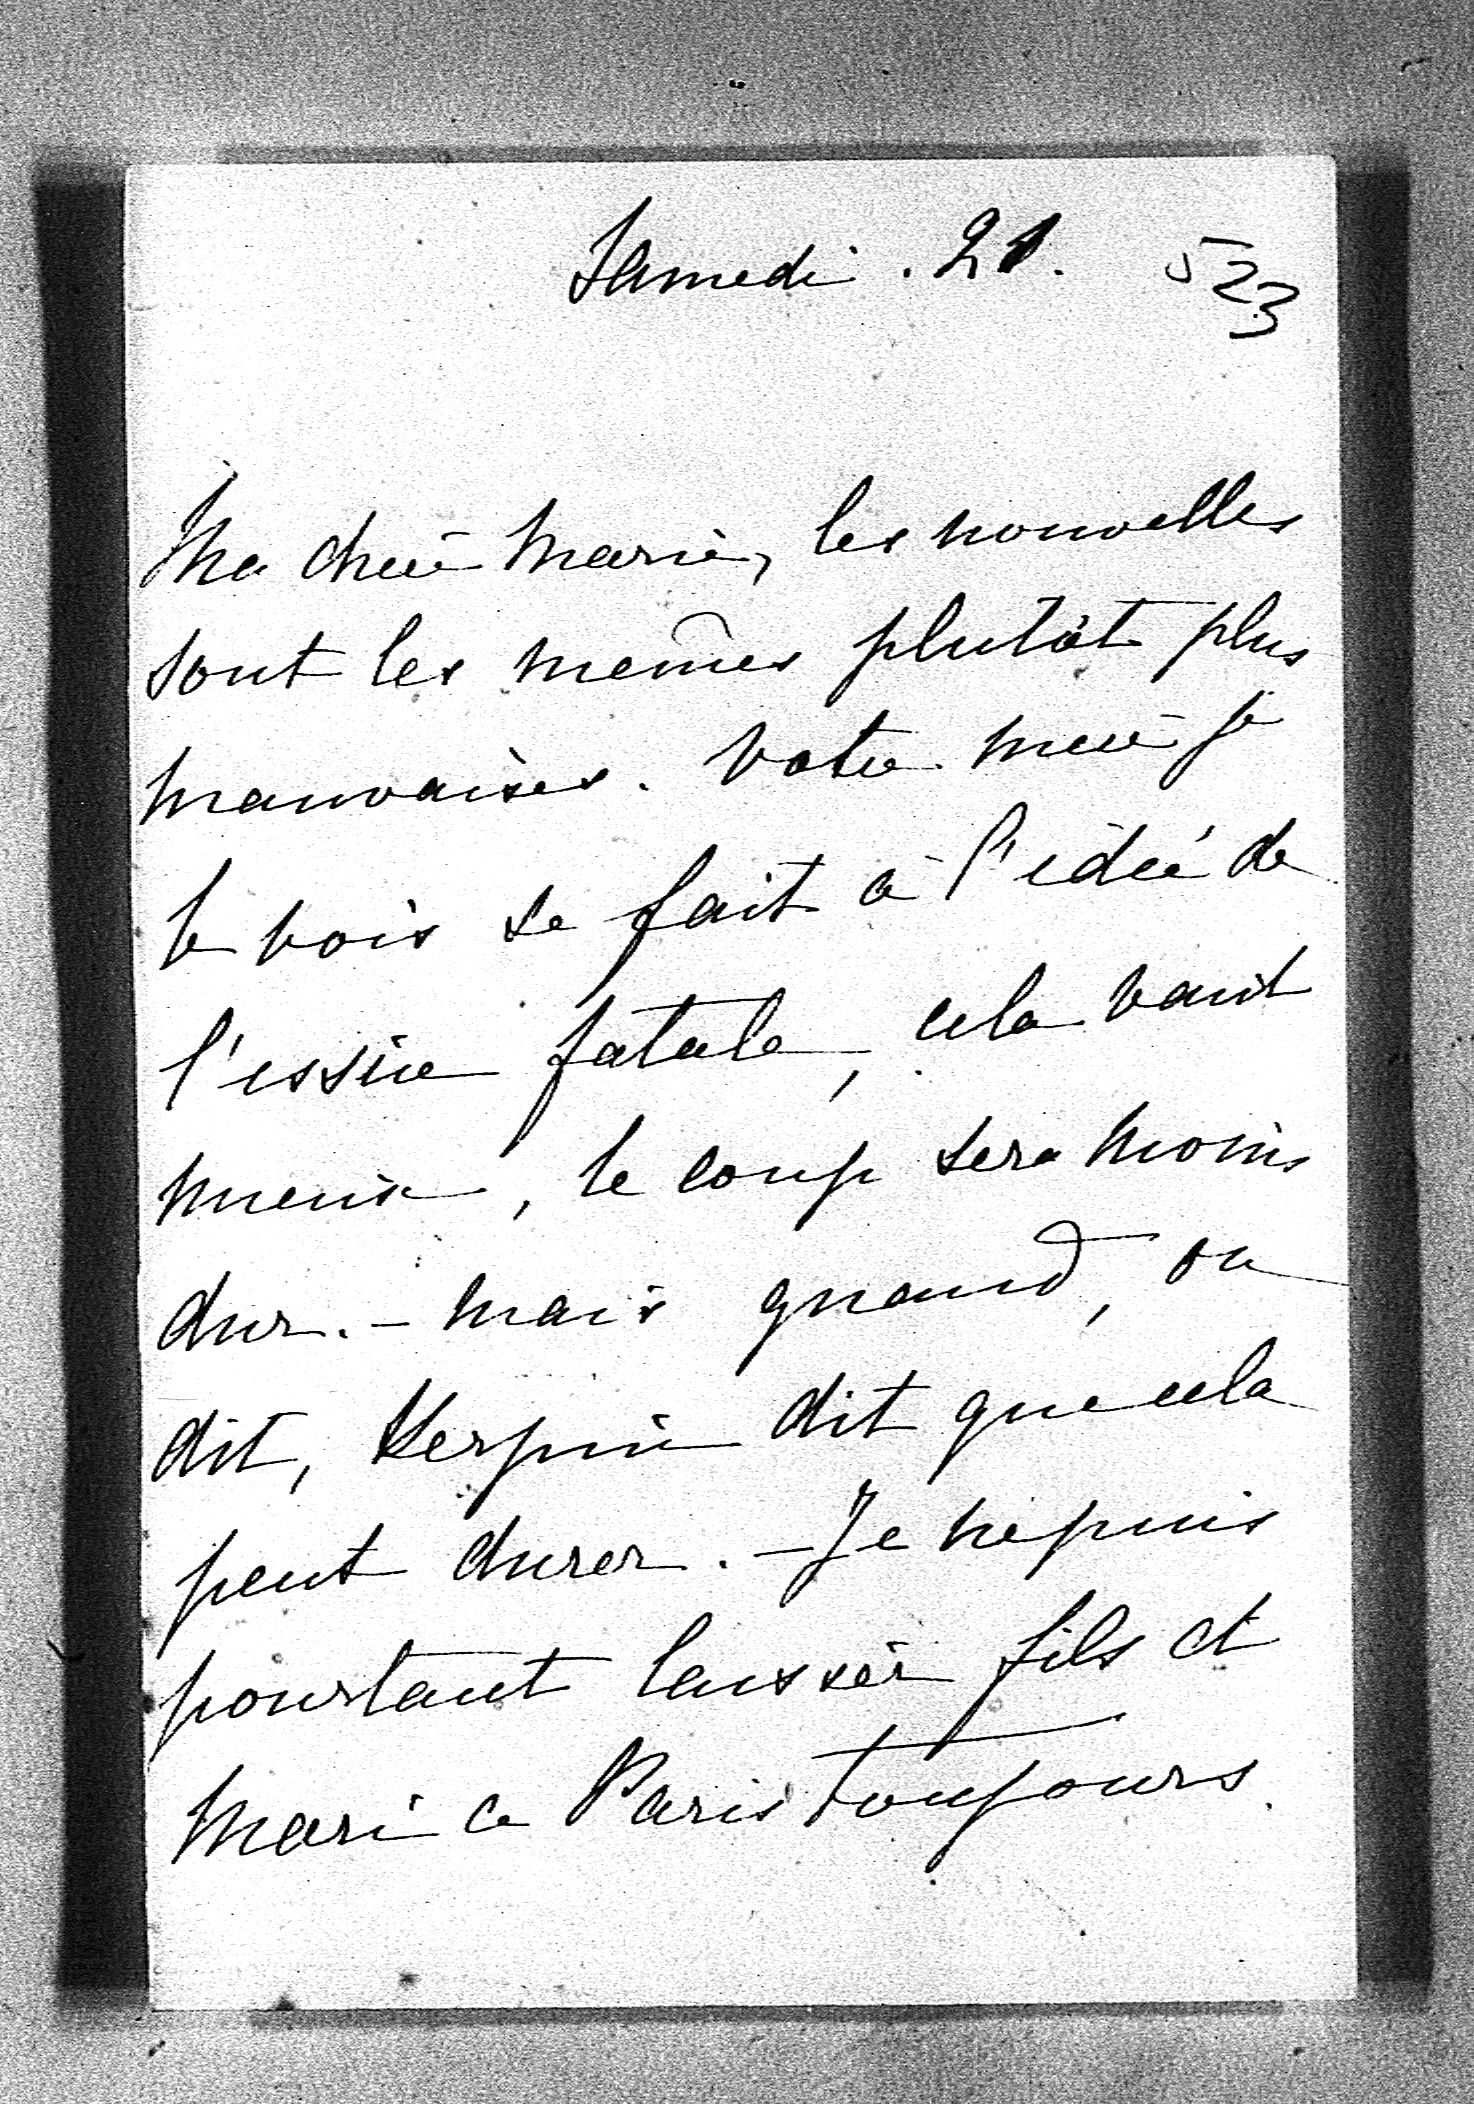 Samedi . 21. 523
Ma chère Marie, les nouvelles
sont les mêmes plutôt plus
mauvaises. Votre mère je
le vois se fait à l'idée de
l'issue fatale, cela vaut
mieux, le coup sera moins
dur. – mais quand, on
dit, dit que cela
peut durer. – Je ne puis
pourtant laisser fils et
mari a Paris toujours.